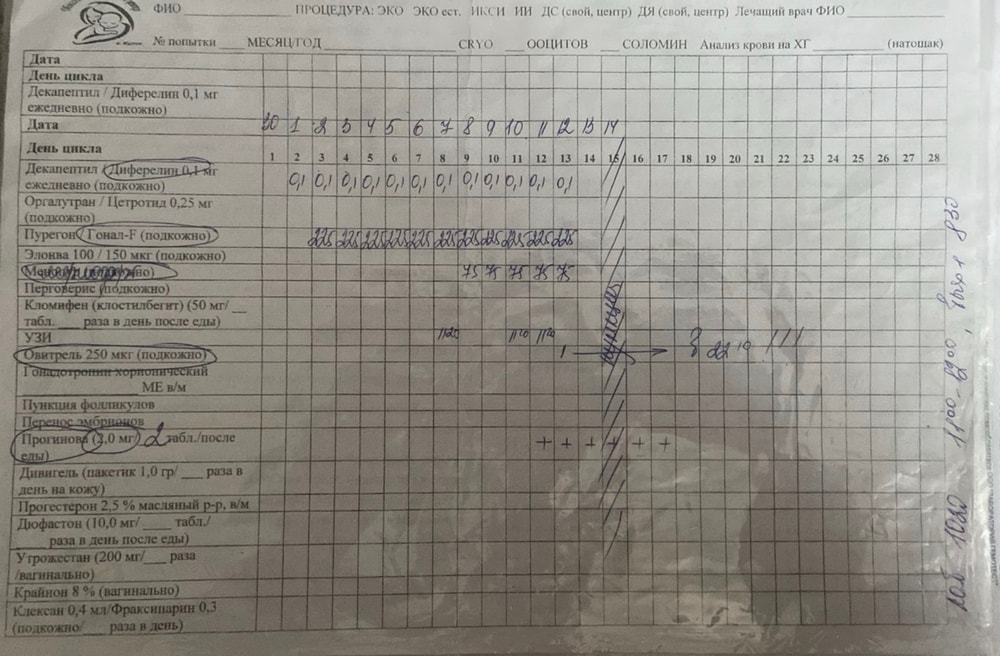 ФИО ПРОЦЕДУРА: ЭКО ЭКО ест. ИКСИ ИИ ДС (свой, центр) ДЯ (свой, центр) Лечащий врач ФИО
№ попытки МЕСЯЦ/ГОД CRYO ООЦИТОВ СОЛОМИН Анализ крови на ХГ (натощак)
Дата
День цикла
Декапептил / Диферелин 0,1 мг
ежедневно (подкожно)
Дата 30 1 2 3 4 5 6 7 8 9 10 11 12 13 14
День цикла 1 2 3 4 5 6 7 8 9 10 11 12 13 14 15 16 17 18 19 20 21 22 23 24 25 26 27 28
Декапептил / Диферелин 0,1 мг
ежедневно (подкожно) 0,1 0,1 0,1 0,1 0,1 0,1 0,1 0,1 0,1 0,1 0,1 0,1
Оргалутран / Цетротид 0,25 мг
(подкожно)
Пурегон / Гонал-F (подкожно) 225 225 225 225 225 225 225 225 225 225 225
Элонва 100 / 150 мкг (подкожно)
75 75 75 75 75
Перговерис (подкожно)
Кломифен (клостилбегит) (50 мг/ __
табл. ___ раза в день после еды)
УЗИ 11 20 11 20 11 20
Овитрель 250 мкг (подкожно) пункция 22 10 !!!
Гонадотропин хорионический
МЕ в/м
Пункция фолликулов
Перенос эмбрионов
Прогинова (2,0 мг) 2 табл./после
еды) + + + + + +
Дивигель (пакетик 1,0 гр/ ___ раза в
день на кожу)
Прогестерон 2,5 % масляный р-р, в/м
Дюфастон (10,0 мг/ ____ табл./
____ раза в день после еды)
Утрожестан (200 мг/___ раза
/вагинально)
Крайнон 8 % (вагинально)
Клексан 0,4 мл/Фраксипарин 0,3
(подкожно/ ___ раза в день)